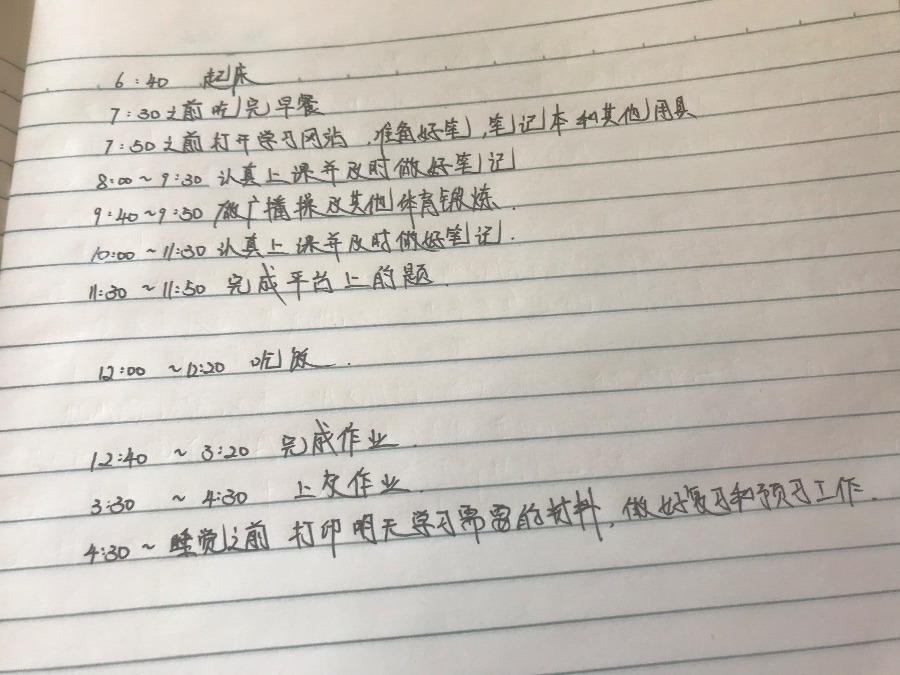 6:40 起床
7:30之前吃完早餐
7:50之前打开学习网站，准备好笔，笔记本和其他用具
8:00~9:30 认真上课并及时做好笔记
9:40~9:50 做广播操及其他体育锻炼.
10:00~11:30 认真上课并及时做好笔记.
11:30~11:50 完成平台上的题.
12:00 ~12:20 吃饭.
12:40 ~ 3:20 完成作业.
3:30 ~ 4:30 上交作业.
4:30~ 睡觉之前 打印明天学习需要的材料，做好复习和预习工作.